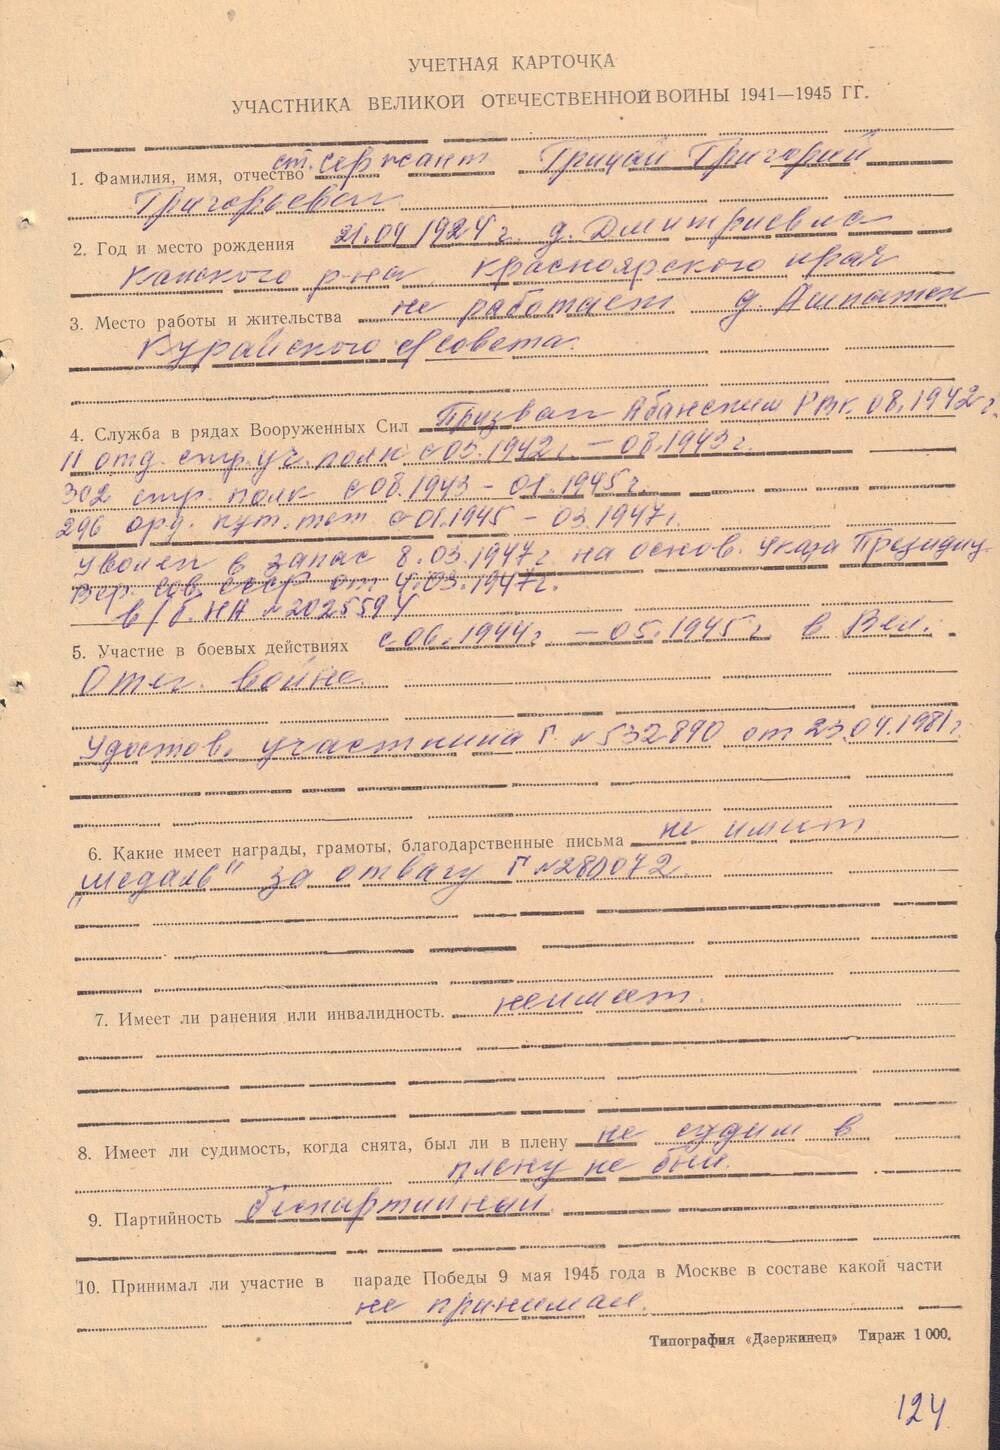 УЧЕТНАЯ КАРТОЧКА
УЧАСТНИКА ВЕЛИКОЙ ОТЕЧЕСТВЕННОЙ ВОЙНЫ 1941—1945 ГГ.
1. Фамилия, имя, отчество ст. сержант Грицай Григорий
Григорьевич
2. Год и место рождения 21.04.1924 г. д. Дмитриевка
Канского р-на Красноярского края
3. Место работы и жительства не работает д. Ашпатск
Курайского с/совета.
4. Служба в рядах Вооруженных Сил Призван Абанским РВК. 08.1942 г.
11 отд. стр. уч. полк с 03.1942 г. – 08.1943 г.
302 стр. полк с 08.1943 – 01.1945 г.
296 ард. пут. с 01.1945 – 03.1947 г.
Уволен в запас 8.03.1947 г. на основ. Указа Президиу.
Вер. Сов. СССР от 4.03.1947 г.
в/б. НА №2025594
5. Участие в боевых действиях с 06.1944 г. – 05.1945 г. в Вел.
Отеч. войне.
Удостов. участника Г №532890 от 23.04.1981 г.
6. Какие имеет награды, грамоты, благодарственные письма не имеет
„Медаль" за отвагу Г №280072.
7. Имеет ли ранения или инвалидность. не имеет.
8. Имеет ли судимость, когда снята, был ли в плену не судим в
плену не был.
9. Партийность беспартийный.
10. Принимал ли участие в параде Победы 9 мая 1945 года в Москве в составе какой части
не принимал.
Типография «Дзержинец» Тираж 1 000.
124